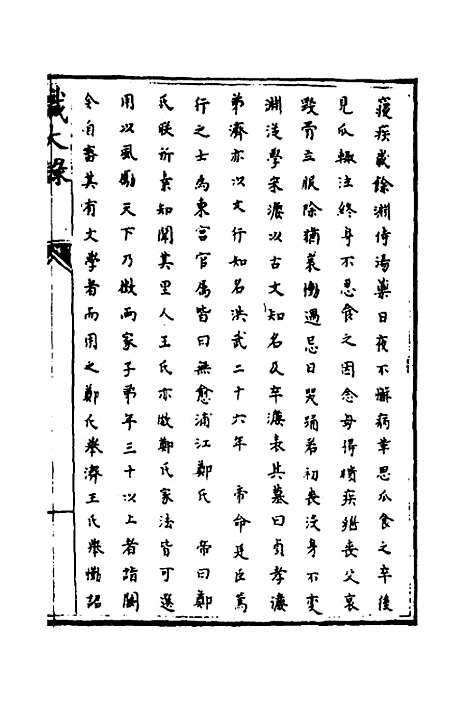 寢疾歲餘淵侍湯藥日夜不懈病革思瓜食之卒後
見瓜輒泣終身不忍食之因念母得瞶疾繼喪父哀
毀骨立服除猶蔬慟遇忌日哭踊若初喪沒身不變
淵從學宋濂以古文知名及卒濂表其墓曰貞孝濂
弟濟亦以文行知名洪武二十六年 帝命廷臣薦
行之士為東宮官屬皆曰無愈浦江鄭氏 帝曰鄭
氏朕所素知聞其里人王氏亦倣鄭氏家法皆可選
用以風勵天下乃徵兩家子弟年三十以上者詣闕
令自舉其有文學者而用之鄭氏舉濟王氏舉懃詔
識大錄